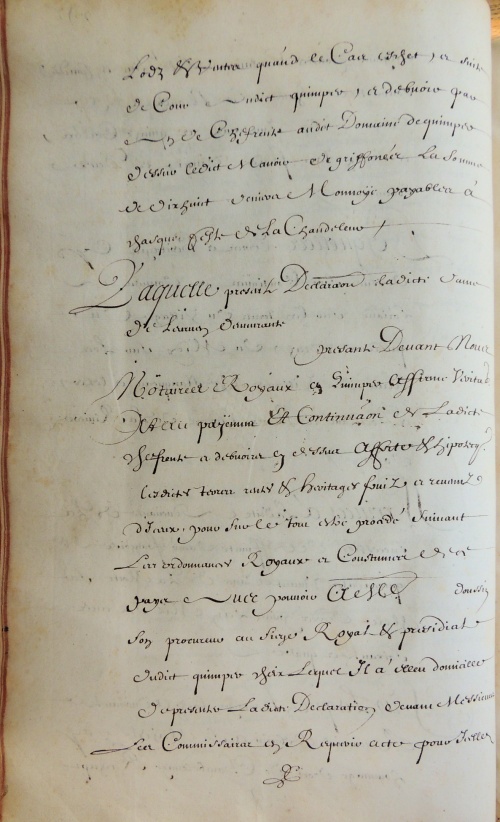 Lodz & Ventes quand le Cas eschet, et suite
de Cour audict quimper, et debvoir par
an de Cheffrente audit Domaine de quimper
dessur ledict Manoir de griffonez La Somme
de dixhuict deniers Monnoye payables à
chasque feste de La Chandeleur
Laquelle presente Declaration ladicte dame
de demeurante
presante Devant Nous
Nottaires Royaux de Quimper affirme veritable
Et au payement Et Continuaon de Ladicte
cheffrente et debvoirs cy dessus affecte & hipotecq
lesdictes terres rentes & heritages fruictz et revenuz
d'Iceux pour sur le tout estre procédé suivant
Les ordonnances Royaux et Coustumes de ce
pays avec pouvoir
son procureur au siege Royal & presidial
dudict quimper chez Lequel Il a esleu domicille
de presenter Ladicte Declaration devant Messieurs
Les Commissaires en Requerir acte pour Icelle